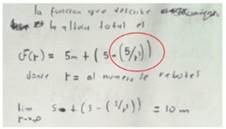 la función que describe
la altura total el
F(r) = 5m + (5 - (5/r))
donde r = al numero de rebotes
lim 5 + (5 - (5/r)) = 10 m
r→∞